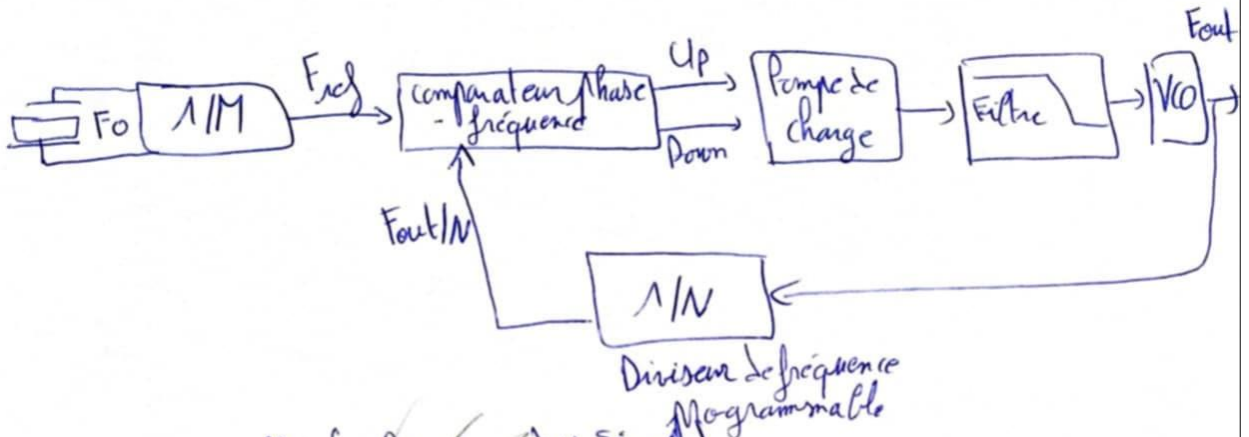 Fout
Fref
Up
Fo
1/M
comparateur phase
- fréquence
Pompe de
charge
Filtre
VCO
Down
Fout/N
1/N
Diviseur de fréquence
programmable